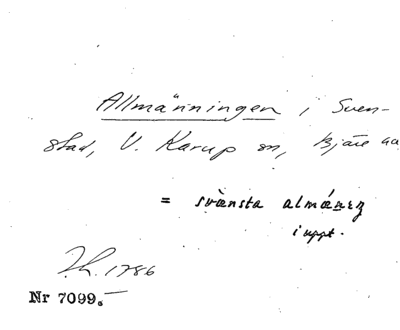 Allmänningen i Sven-
stad, V. Karup sn, Bjäre
= svänsta almánez
i uppt.
1786
Nr 7099.